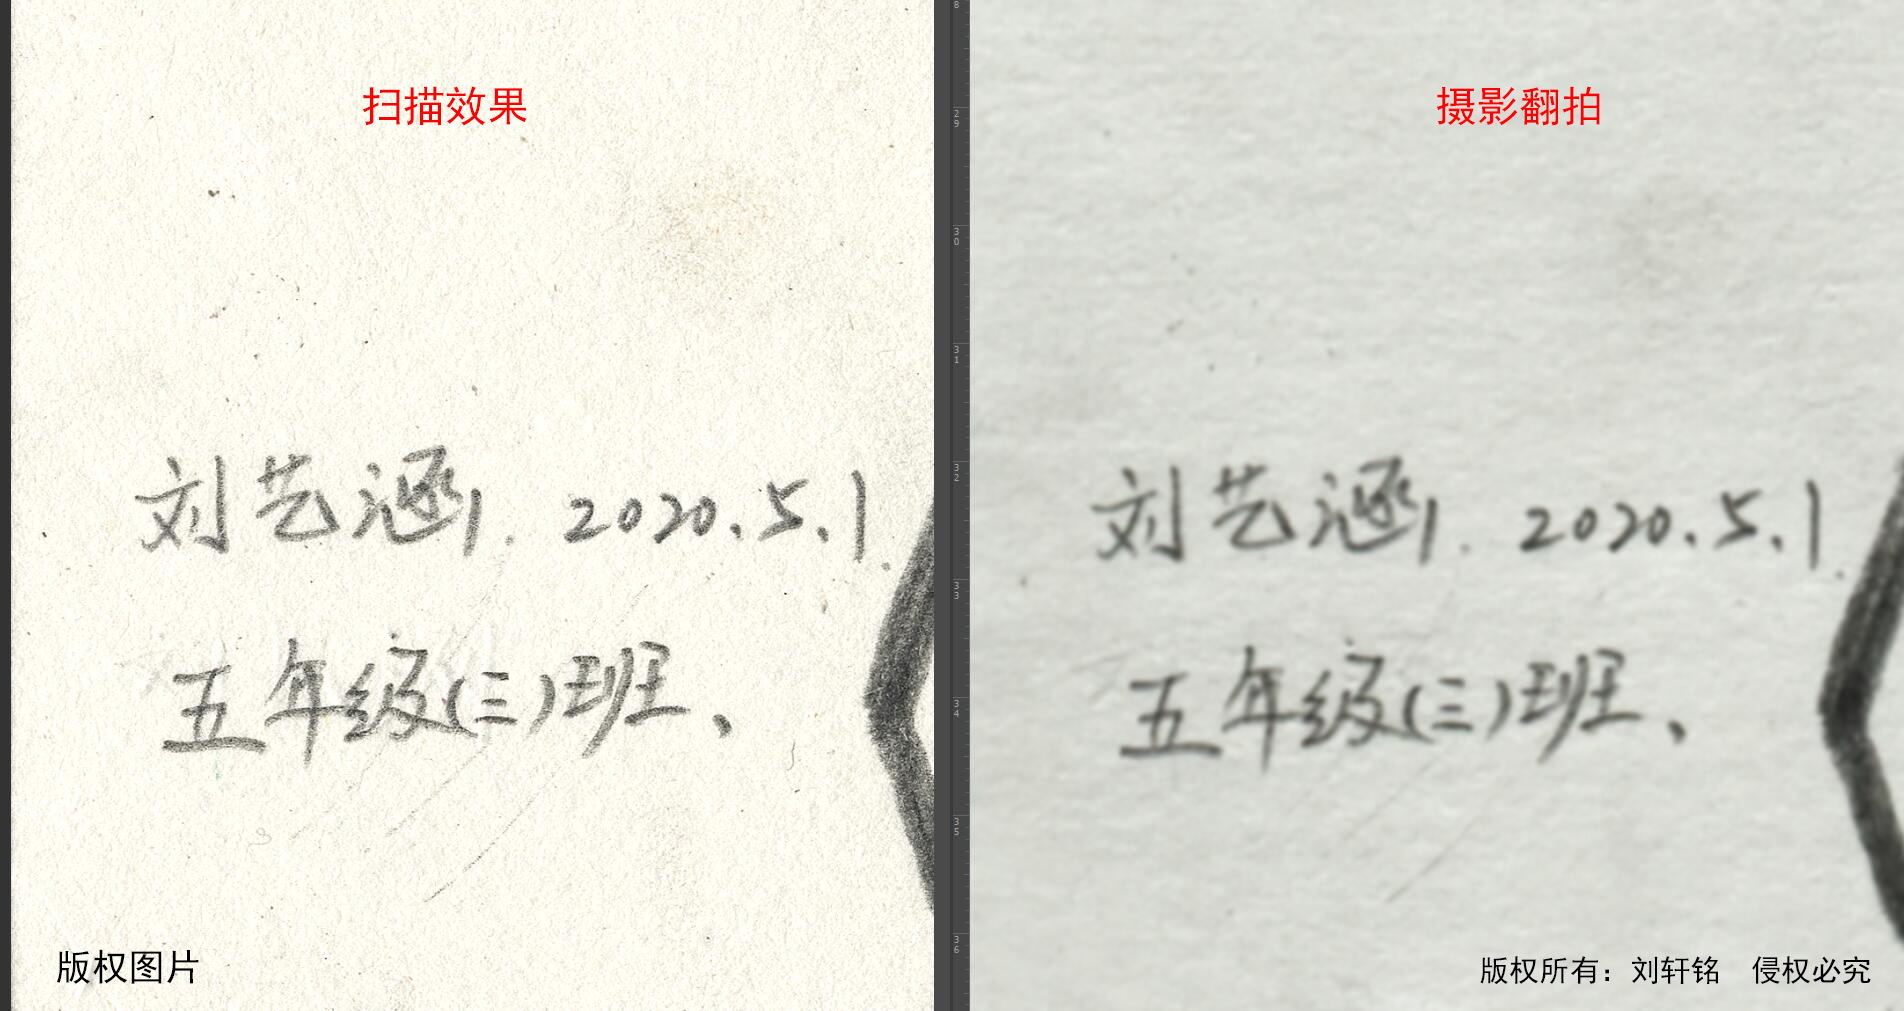 扫描效果
刘艺涵 2020.5.1
五年级(三)班、
版权图片
摄影翻拍
刘艺涵 2020.5.1
五年级(三)班、
版权所有：刘轩铭 侵权必究
29
30
31
32
33
34
35
36